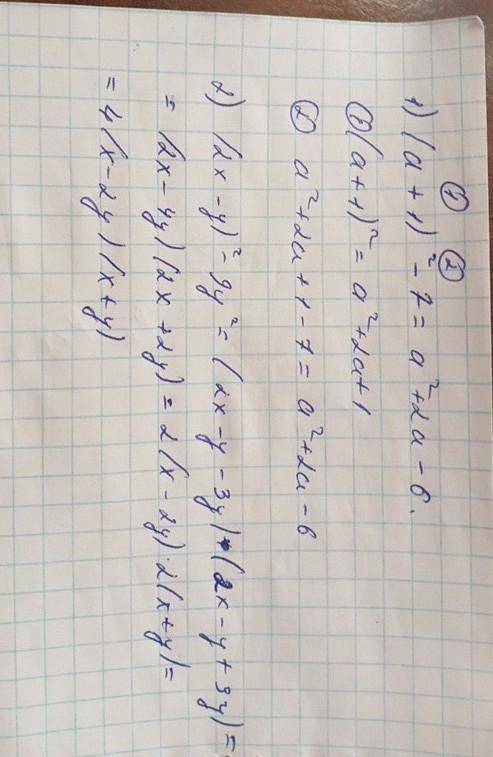 ① ②
1) (a + 1)² - 7 = a² + 2a - 6.
① (a + 1)² = a² + 2a + 1
② a² + 2a + 1 - 7 = a² + 2a - 6
2) (2x - y)² - 9y² = (2x - y - 3y) · (2x - y + 3y) =
= (2x - 4y)(2x + 2y) = 2(x - 2y) · 2(x + y) =
= 4(x - 2y)(x + y)